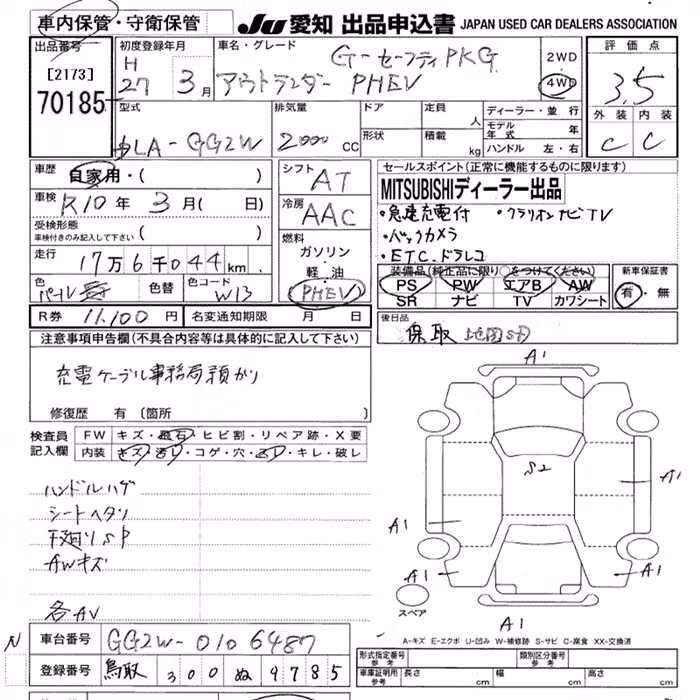 車内保管・守衛保管 JU 愛知 出品申込書 JAPAN USED CAR DEALERS ASSOCIATION
出品番号 初度登録年月 車名・グレード 評価点
[2173] H G-セーフティPKG 2WD
70185 27 3月 アウトランダー PHEV 4WD 3.5
型式 排気量 ドア 定員 人 ディーラー・並行 外装 内装
DLA-GG2W 2000 cc 形状 積載 kg モデル年式 年 C C
ハンドル 左・右
車歴 自家用・( ) シフト AT セールスポイント(正常に機能するものに限ります)
車検 R10年 3月( 日) 冷房 AAC MITSUBISHIディーラー出品
受検形態 ・急速充電付 ・クラリオンナビTV
車検付きのみ記入して下さい ( ) 燃料 ・バックカメラ
走行 17万6千044km ガソリン ・ETC.ドラレコ
・軽・油 装備品(純正品に限り○をつけてください) 新車保証書
色 パール 色替 色コード W13 (PHEV) PS PW エアB AW 有・無
SR ナビ TV カワシート
R券 11,100円 名変通知期限 月 日 後日品
注意事項申告欄(不具合内容等は具体的に記入して下さい) 保取 地図SD
充電ケーブル事務局預かり
修復歴 有 〔箇所 〕
検査員 FW キズ・飛石・ヒビ割・リペア跡・X要
記入欄 内装 キズ・汚レ・コゲ・穴・凹レ・キレ・破レ
ハンドルハゲ
シートヘタリ
下廻りSP
AWキズ
各AV
A1
S2
A1
A1
A1
A1
スペア A1
A-キズ E-エクボ U-凹み W-補修跡 S-サビ C-腐食 XX-交換済
N 車台番号 GG2W-0106487
登録番号 鳥取 300 ぬ 9785
形式指定番号 参考 類別区分番号 参考
車庫証明用 参考 長さ cm 幅 cm 高さ cm